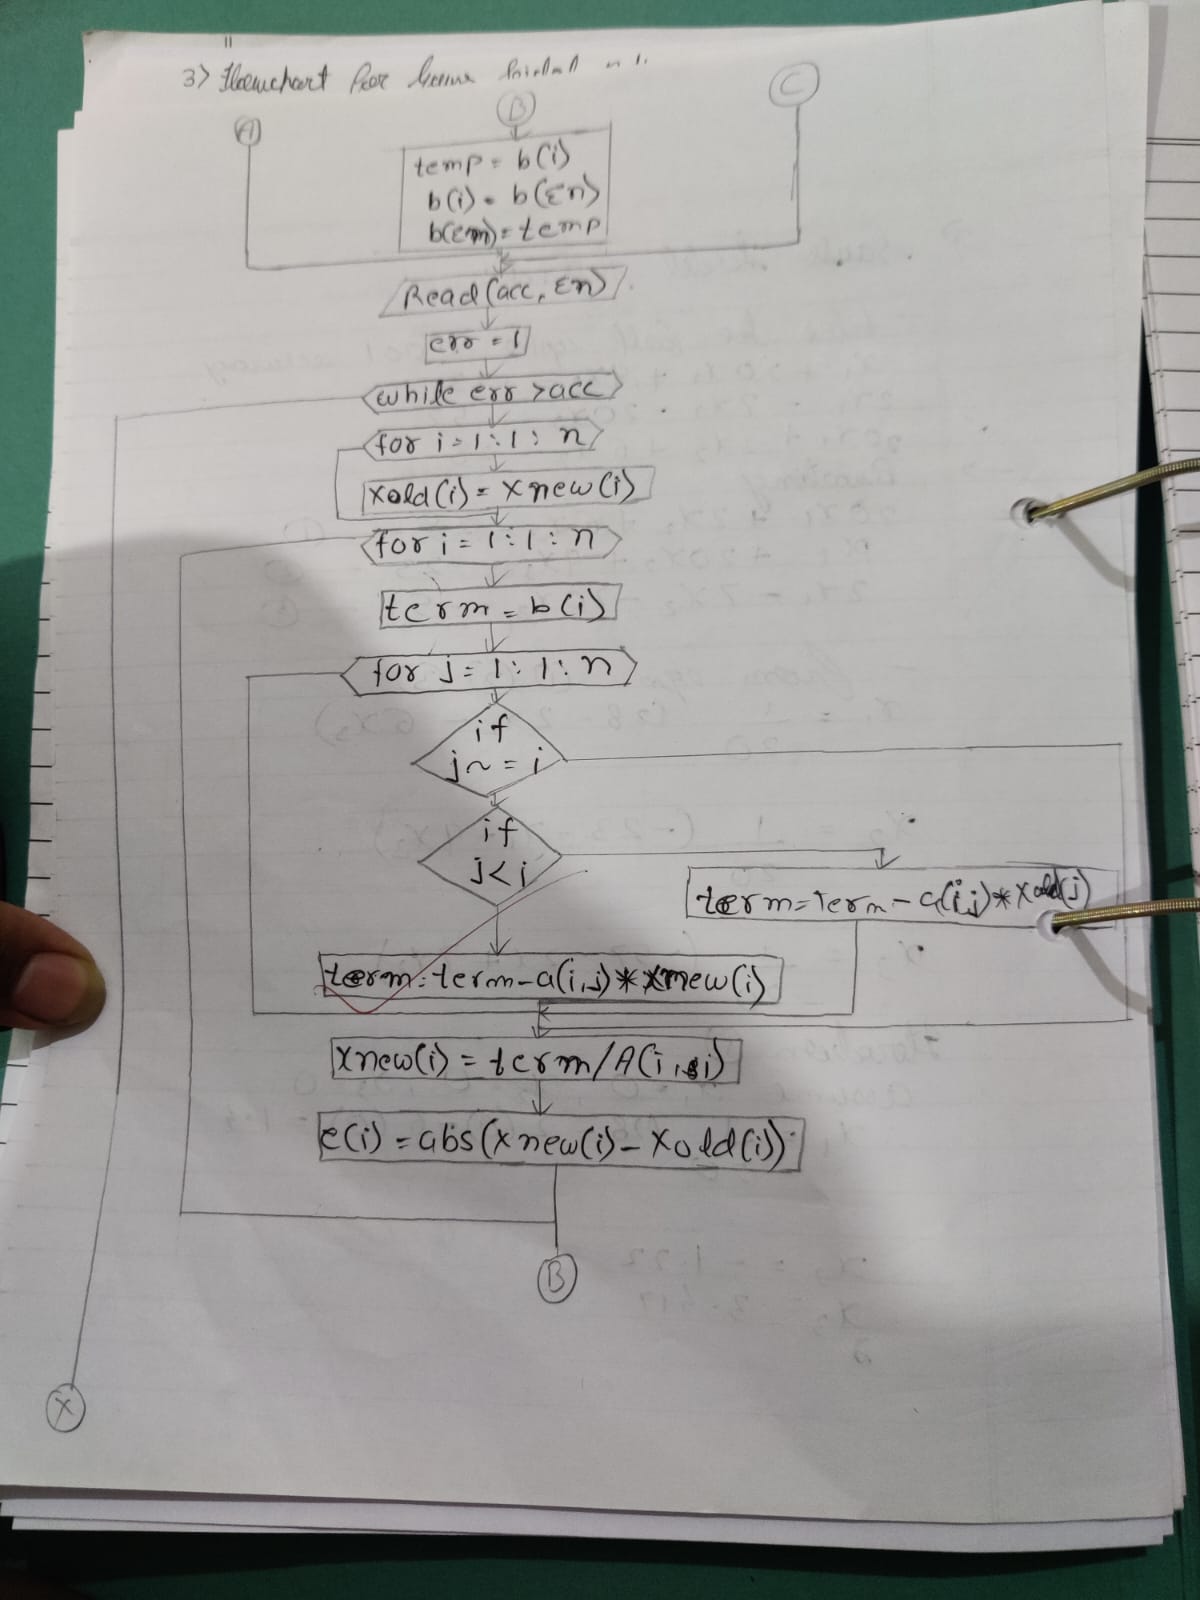 3> Flowchart for
A
B
C
temp = b(i)
b(i) = b(En)
b(Em) = temp
Read (acc, En)
err = 1
while err > acc
for i = 1:1: n
Xold(i) = Xnew(i)
for i = 1:1:n
term = b(i)
for j = 1:1:n
if
j~=i
if
j<i
term=term-a(i,j)*Xold(j)
term=term-a(i,j)*Xnew(i)
Xnew(i) = term/A(i,i)
e(i) = abs(Xnew(i)-Xold(i))
B
X